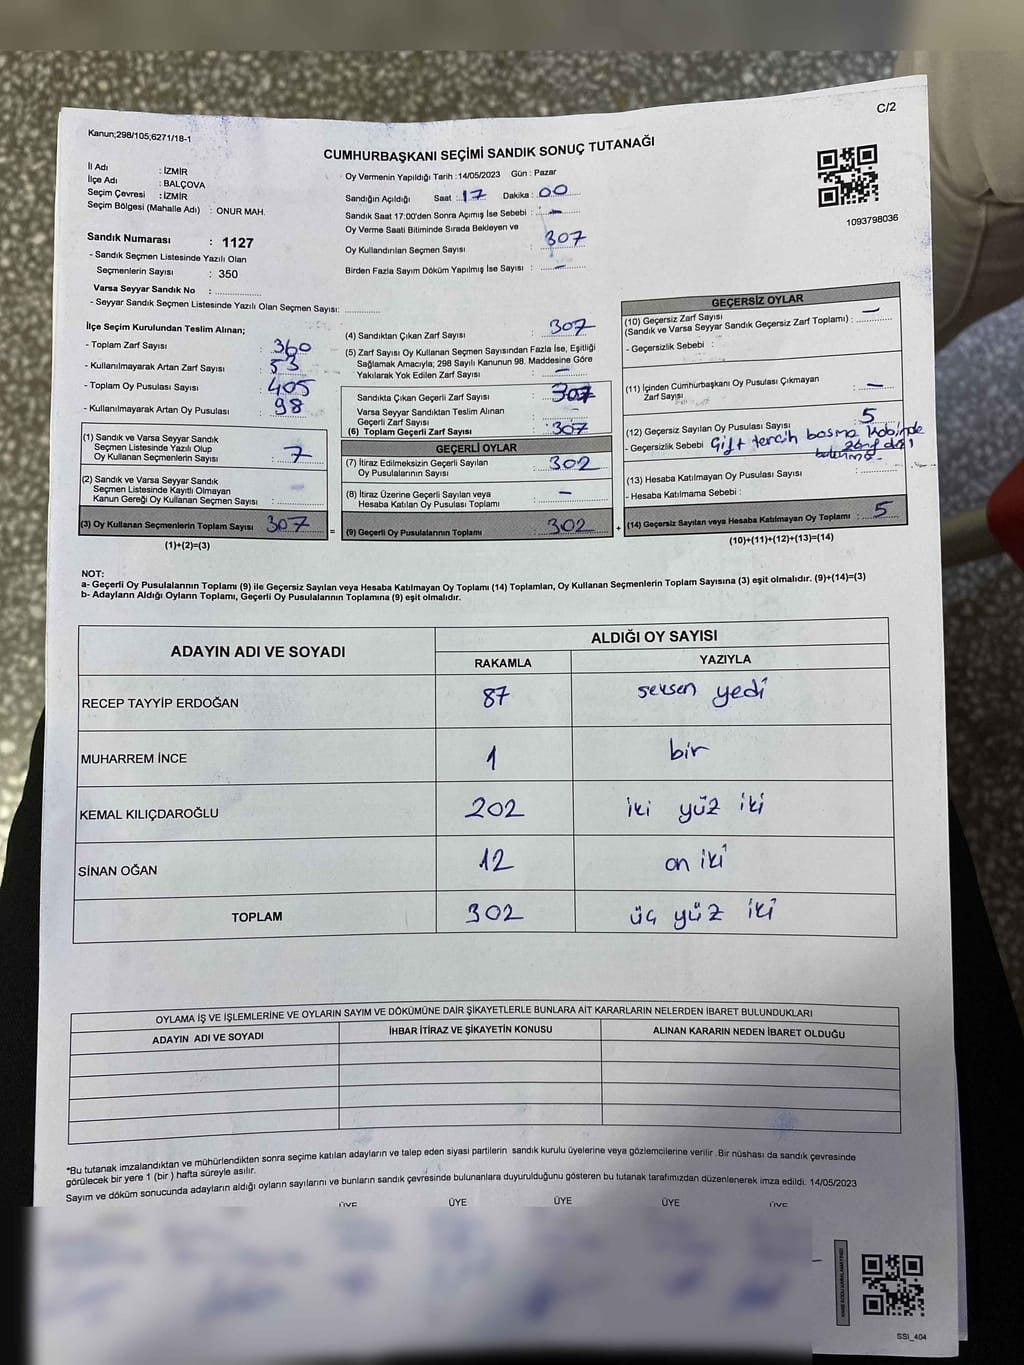 C/2
Kanun;298/105;6271/18-1
CUMHURBAŞKANI SEÇİMİ SANDIK SONUÇ TUTANAĞI
İl Adı : İZMİR
İlçe Adı : BALÇOVA
Seçim Çevresi : İZMİR
Seçim Bölgesi (Mahalle Adı) : ONUR MAH.
Sandık Numarası : 1127
- Sandık Seçmen Listesinde Yazılı Olan
Seçmenlerin Sayısı : 350
Varsa Seyyar Sandık No : ..............
- Seyyar Sandık Seçmen Listesinde Yazılı Olan Seçmen Sayısı: ...........
Oy Vermenin Yapıldığı Tarih :14/05/2023 Gün : Pazar
Sandığın Açıldığı Saat : 17 Dakika : 00
Sandık Saat 17:00'den Sonra Açımış İse Sebebi : -
Oy Verme Saati Bitiminde Sırada Bekleyen ve
Oy Kullandırılan Seçmen Sayısı : 307
Birden Fazla Sayım Döküm Yapılmış İse Sayısı : -
1093798036
İlçe Seçim Kurulundan Teslim Alınan;
- Toplam Zarf Sayısı : 360
- Kullanılmayarak Artan Zarf Sayısı : 53
- Toplam Oy Pusulası Sayısı : 405
- Kullanılmayarak Artan Oy Pusulası : 98
(1) Sandık ve Varsa Seyyar Sandık
Seçmen Listesinde Yazılı Olup
Oy Kullanan Seçmenlerin Sayısı : 7
(2) Sandık ve Varsa Seyyar Sandık
Seçmen Listesinde Kayıtlı Olmayan
Kanun Gereği Oy Kullanan Seçmen Sayısı : -
(3) Oy Kullanan Seçmenlerin Toplam Sayısı 307 =
(1)+(2)=(3)
(4) Sandıktan Çıkan Zarf Sayısı : 307
(5) Zarf Sayısı Oy Kullanan Seçmen Sayısından Fazla İse, Eşitliği
Sağlamak Amacıyla; 298 Sayılı Kanunun 98. Maddesine Göre
Yakılarak Yok Edilen Zarf Sayısı : -
Sandıkta Çıkan Geçerli Zarf Sayısı : 307
Varsa Seyyar Sandıktan Teslim Alınan
Geçerli Zarf Sayısı : -
(6) Toplam Geçerli Zarf Sayısı : 307
GEÇERLİ OYLAR
(7) İtiraz Edilmeksizin Geçerli Sayılan
Oy Pusulasının Sayısı : 302
(8) İtiraz Üzerine Geçerli Sayılan veya
Hesaba Katılan Oy Pusulası Toplamı : -
(9) Geçerli Oy Pusulalarının Toplamı 302 +
GEÇERSİZ OYLAR
(10) Geçersiz Zarf Sayısı
(Sandık ve Varsa Seyyar Sandık Geçersiz Zarf Toplamı) : -
- Geçersizlik Sebebi :
(11) İçinden Cumhurbaşkanı Oy Pusulası Çıkmayan
Zarf Sayısı : -
(12) Geçersiz Sayılan Oy Pusulası Sayısı : 5
- Geçersizlik Sebebi Çift tercih basma kabinde
(13) Hesaba Katılmayan Oy Pusulası Sayısı :
- Hesaba Katılmama Sebebi :
(14) Geçersiz Sayılan veya Hesaba Katılmayan Oy Toplamı : 5
(10)+(11)+(12)+(13)=(14)
NOT:
a- Geçerli Oy Pusulalarının Toplamı (9) ile Geçersiz Sayılan veya Hesaba Katılmayan Oy Toplamı (14) Toplamları, Oy Kullanan Seçmenlerin Toplam Sayısına (3) eşit olmalıdır. (9)+(14)=(3)
b- Adayların Aldığı Oyların Toplamı, Geçerli Oy Pusulalarının Toplamına (9) eşit olmalıdır.
ADAYIN ADI VE SOYADI
ALDIĞI OY SAYISI
RAKAMLA YAZIYLA
RECEP TAYYİP ERDOĞAN 87 seksen yedi
MUHARREM İNCE 1 bir
KEMAL KILIÇDAROĞLU 202 iki yüz iki
SİNAN OĞAN 12 on iki
TOPLAM 302 üç yüz iki
OYLAMA İŞ VE İŞLEMLERİNE VE OYLARIN SAYIM VE DÖKÜMÜNE DAİR ŞİKAYETLERLE BUNLARA AİT KARARLARIN NELERDEN İBARET BULUNDUKLARI
ADAYIN ADI VE SOYADI İHBAR İTİRAZ VE ŞİKAYETİN KONUSU ALINAN KARARIN NEDEN İBARET OLDUĞU
*Bu tutanak imzalandıktan ve mühürlendikten sonra seçime katılan adayların ve talep eden siyasi partilerin sandık kurulu üyelerine veya gözlemcilerine verilir .Bir nüshası da sandık çevresinde
görülecek bir yere 1 (bir ) hafta süreyle asılır.
Sayım ve döküm sonucunda adayların aldığı oyların sayılarını ve bunların sandık çevresinde bulunanlara duyurulduğunu gösteren bu tutanak tarafımızdan düzenlenerek imza edildi. 14/05/2023
ÜYE ÜYE ÜYE ÜYE ÜYE
SSI_404